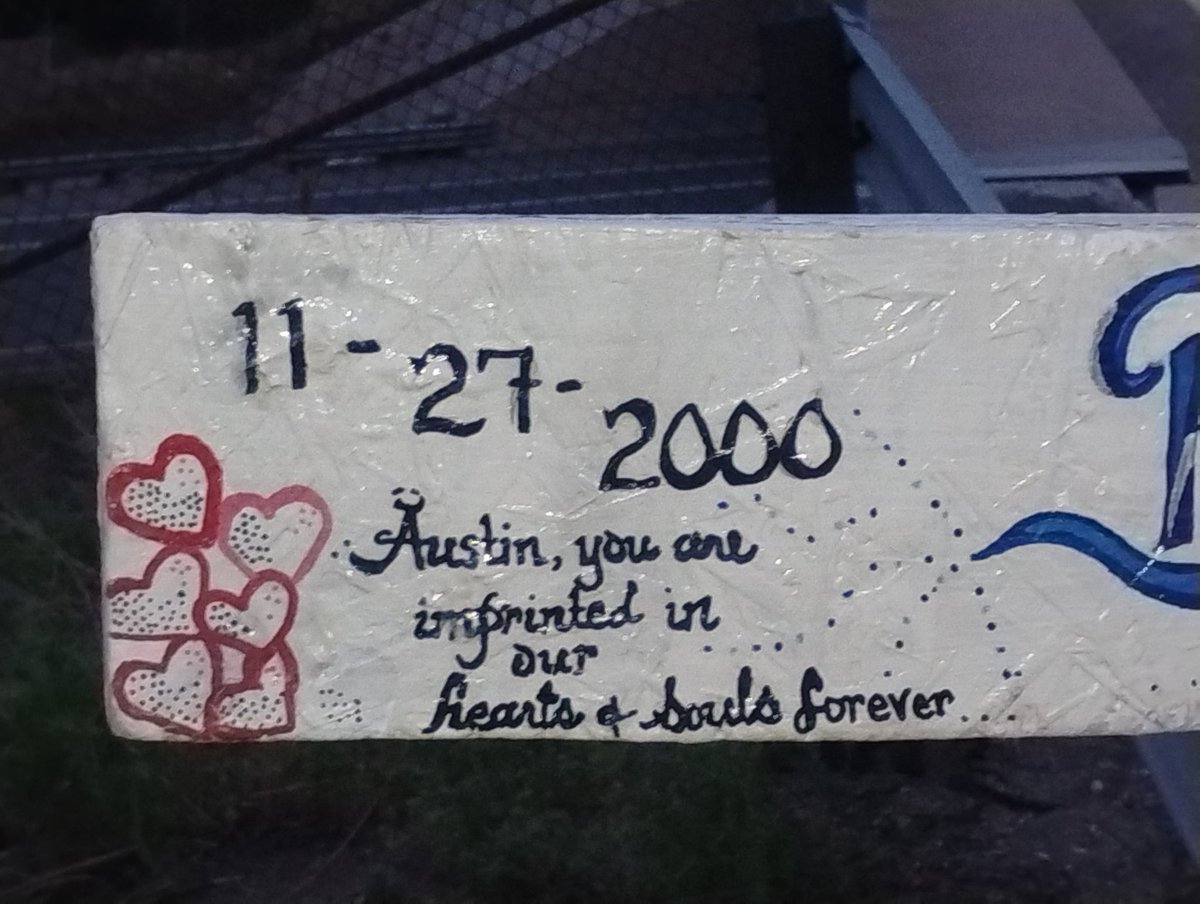 11-27-2000
Äustin, you are
imprinted in
our
hearts & souls forever...